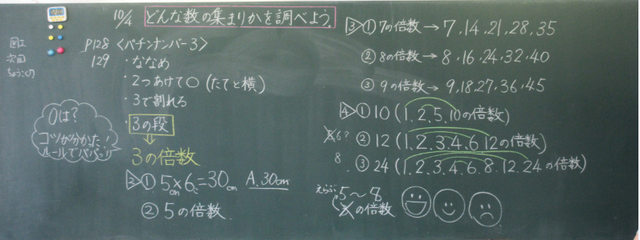 10/4 どんな数の集まりかを調べよう。
P128 〈パチンナンバー3〉
129 ・ななめ
・2つあけて○(たてと横)
・3で割れる
・3の段
3の倍数
0は?
コツが分かった!
ルールでバッチリ
② ① 5×6=30 A.30cm
cm cm
② 5の倍数
③ ① 7の倍数→7.14.21.28.35
② 8の倍数→8.16.24.32.40
③ 9の倍数→9.18.27.36.45
④ ① 10(1.2.5.10の倍数)
6? ② 12(1.2.3.4.6.12の倍数)
8. ③ 24(1.2.3.4.6.8.12.24の倍数)
えらぶ 5〜8
の倍数